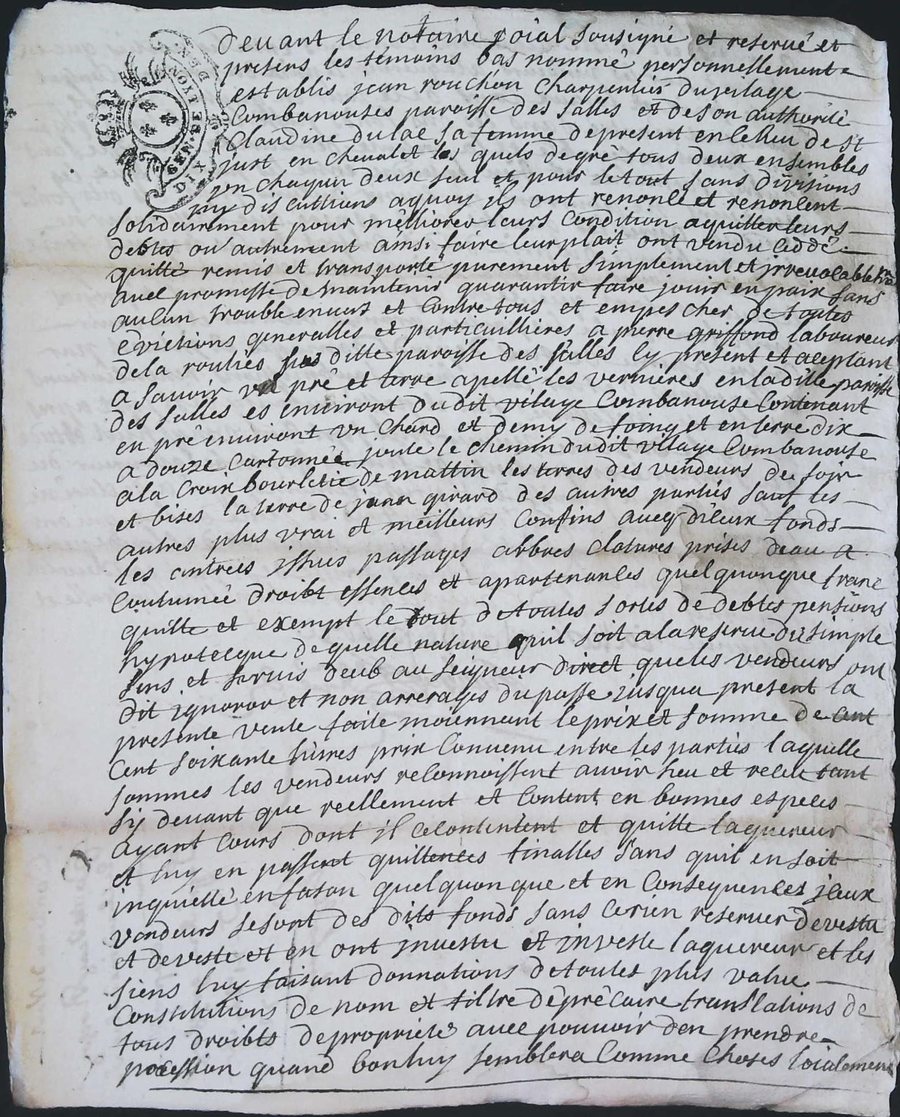 DIX DEN
GENER LYON
devant le notaire roial sousigné et reservé et
presens les témoins bas nommé personnellement
establis jean rouchon Charpentier du vilage
Combanouses paroisse des salles et de son authorité
Claudine dulac sa femme de present en ce lieu de st
just en chevalet les quels de gré tous deux ensembles
un chaqun deux seul et pour le tout sans divisions
ny discuthions aquoy ils ont renoncé et renoncent
solidairement pour mélliorer leurs Condition aquitter leurs
debtes ou autrement ainsi faire leur plait ont vendu ceddé
quitté remis et transporté purement simplement et irrevocablem
avec promesse de maintenir guarantir faire jouir en paix sans
aucun trouble envers et Contre tous et empescher de toutes
evictions generalles et particuillières a pierre griffond laboureur
de la roulies ditte paroisse des salles cy present et aceptant
a sauvoir un pré et terre apellé les vernières en la ditte paroisse
des salles es environt dudit vilage Combanouse Contenant
en pré environt un Chard et demy de foing et en terre dix
a douze cartonnée joute le chemin dudit vilage Combanouse
a la Croix bourlette de mattin les terres des vendeurs de soir
et bises la terre de jean girard des autres parties sauf les
autres plus vrai et meilleurs Confins aveq diceux fonds
les entrées issues passages arbres clotures prises deau a
Coutumée droibt essences et apartenances quelquonque franc
quitte et exempt le tout de toutes sortes de debtes pensions
hypotecque de quelle nature quil soit a la reserve du simple
sens et servis deub au seigneur direct queles vendeurs ont
dit ignorer et non arrerages du passé jusqua present la
presente vente faite moiennant le prix et somme de cent
Cent soixante livres prix Convenu entre les parties laquelle
sommes les vendeurs reconnoissent auvoir heu et receu tant
cy devant que reellement et Content en bonnes especes
ayant Cours dont il ce contentent et quitte laquereur
et luy en passent quittences finalles sans quil en soit
inquietté en fason quelquonque et en Consequences jceux
vendeurs se sont des dits fonds sans ce rien reserver devestu
et deveste et en ont jnvestu et jnveste laquereur et les
siens luy faisant donnations de toutes plus value
Constitutions de nom et tiltre de précaire translations de
tous droibts de proprieté avec pouvoir den prendre
pocession quand bon luy semblera Comme Choses loialement